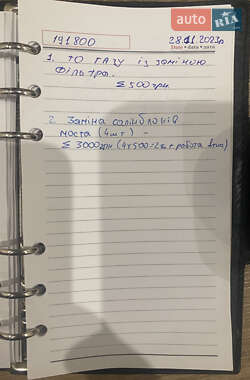 auto RIA
191800
28.01.2023р
Дата • date • дата
1. ТО газу із заміною
фільтра.
Σ 500 грн
2. Заміна сайлблоків
моста (4шт) -
Σ 3000грн (4х500=2000 + робота)